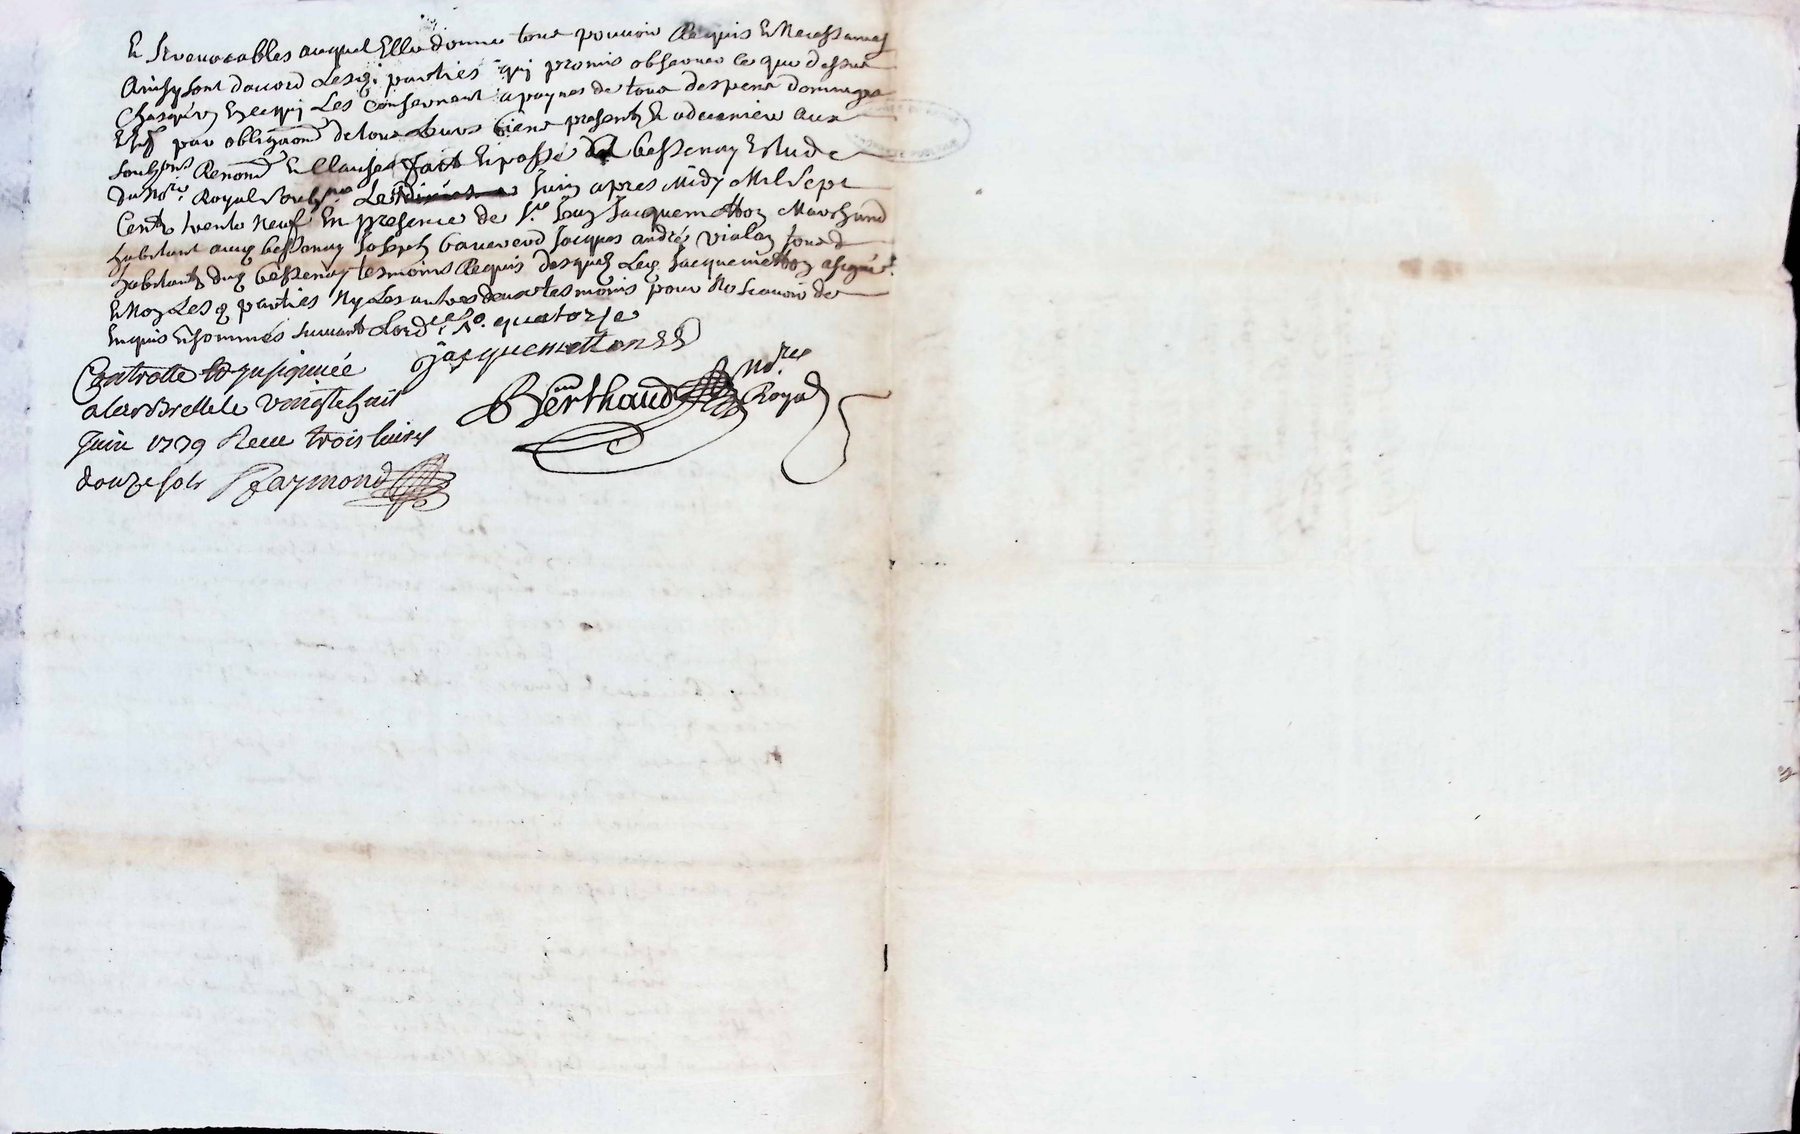 Et Irrevocables auquel Elle donne tous pouvoir Requis Et Necessaires
Ainsy sont daccord Lesd. parties qui promis observer ce que dessus
Chasqu'un En ce qui Les Consernent a paynes de tous despens Dommages
par obligaons de tous Leurs Biens presents Et advenirs aux
Renond Et Clauses fait Et passé Bessenay Estude
Du Nore. Royal Soubsne. Le Juin apres Midy Mil Sept
Cents trente Neuf En presence de Sr. Jacquemetton Marchand
habitant aud Bessenay Joseph Jacques andré vialon tous d
habitants dud Bessenay tesmoins Requis desquels Led Jacquemetton a signé
Et Moy Lesd parties Ny Les autres deux tesmoins pour Ne Scavoir de
Enquis Et sommés suivant Lordce. Ro. quatorze
Jacquemetton
Controllé Et Insinué
a Larbrelle le vingt huit
Juin 1739 Receu trois livres
douze sols Raymond
Berthaud Nore.
Royal